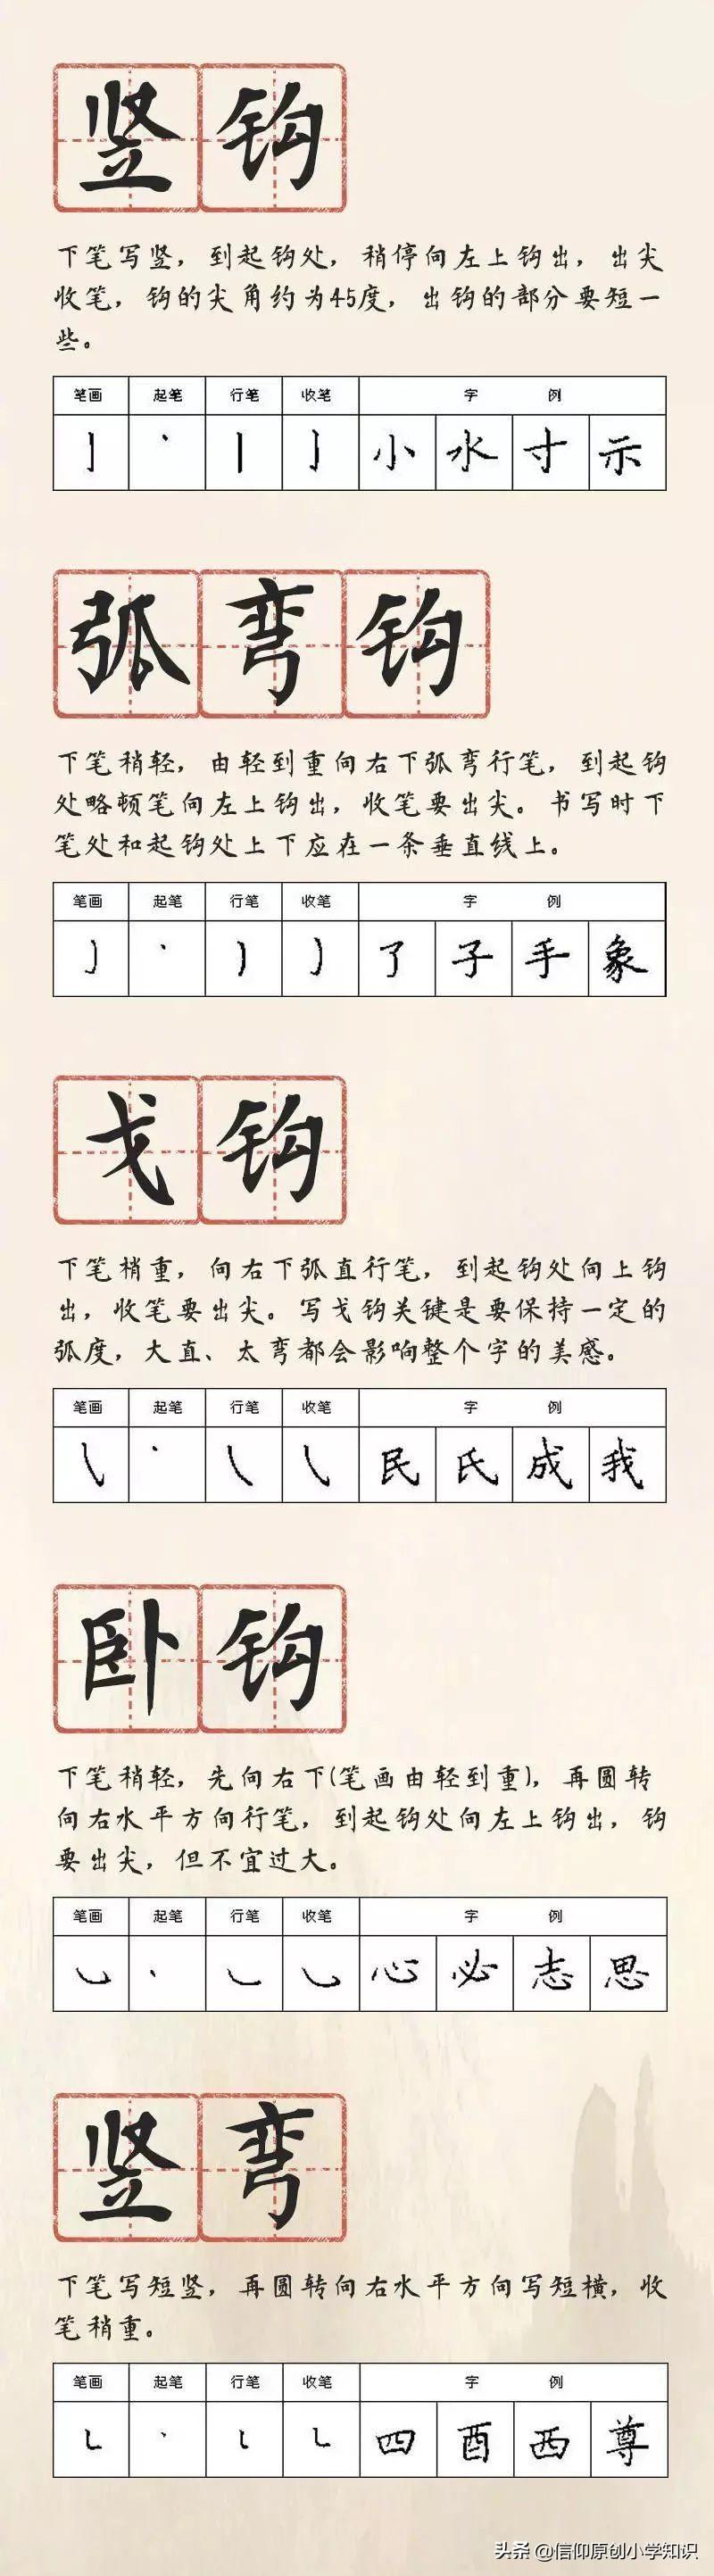 竖钩
下笔写竖，到起钩处，稍停向左上钩出，出尖
收笔，钩的尖角约为45度，出钩的部分要短一
些。
笔画 起笔 行笔 收笔 字 例
亅 丶 丨 亅 小 水 寸 示
弧弯钩
下笔稍轻，由轻到重向右下弧弯行笔，到起钩
处略顿笔向左上钩出，收笔要出尖。书写时下
笔处和起钩处上下应在一条垂直线上。
笔画 起笔 行笔 收笔 字 例
了 子 手 象
戈钩
下笔稍重，向右下弧直行笔，到起钩处向上钩
出，收笔要出尖。写戈钩关键是要保持一定的
弧度，大直、太弯都会影响整个字的美感。
笔画 起笔 行笔 收笔 字 例
民 氏 成 我
卧钩
下笔稍轻，先向右下(笔画由轻到重)，再圆转
向右水平方向行笔，到起钩处向左上钩出，钩
要出尖，但不宜过大。
笔画 起笔 行笔 收笔 字 例
心 必 志 思
竖弯
下笔写短竖，再圆转向右水平方向写短横，收
笔稍重。
笔画 起笔 行笔 收笔 字 例
四 酉 西 尊
头条 @信仰原创小学知识